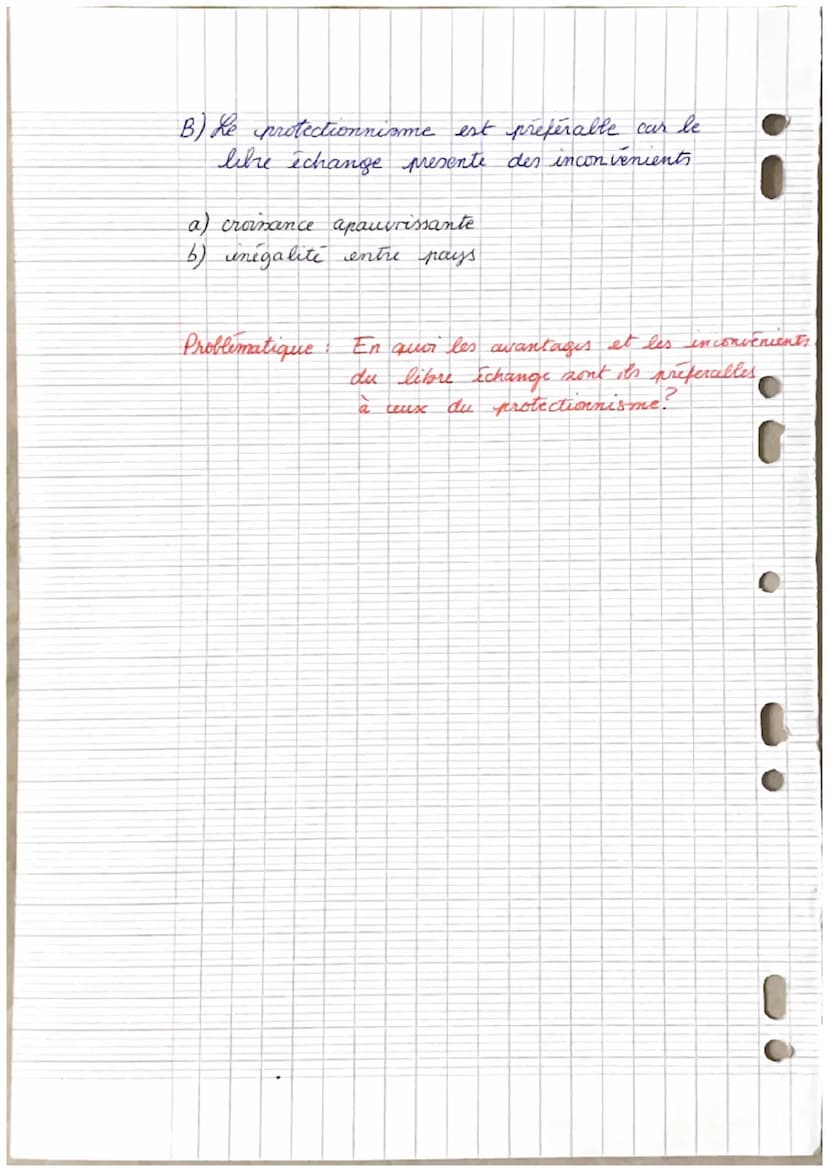 B) Le protectionnisme est préférable car le
libre échange presente des inconvénients
a) croissance apauvrissante
b) inégalité entre pays
Problématique : En quoi les avantages et les inconvénients
du libre échange sont ils préferables
à ceux du protectionnisme?